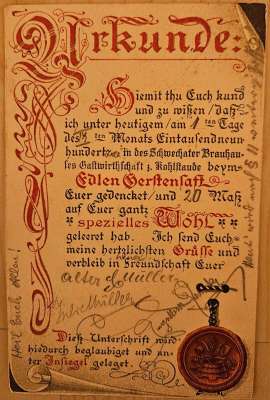 Urkunde:
Hiemit thu Euch kund
und zu wißen / daß
ich unter heutigem / am 4 ten Tage
des ten Monats Eintausendneun
hundert in des Schwechater Brauhau-
ses Gastwirthschaft z. Kohlstaude beym
Edlen Gerstensaft
Euer gedencket / und 20 Maß
auf Euer gantz
spezielles Wohl
geleeret hab. Ich send Euch
meine hertzlichsten Grüße und
verbleib in Freundschaft Euer
alter
Müller
Dieß Unterschrift wird
hiedurch beglaubiget und un-
ter Insiegel geleget.
Heil Euch Allen!